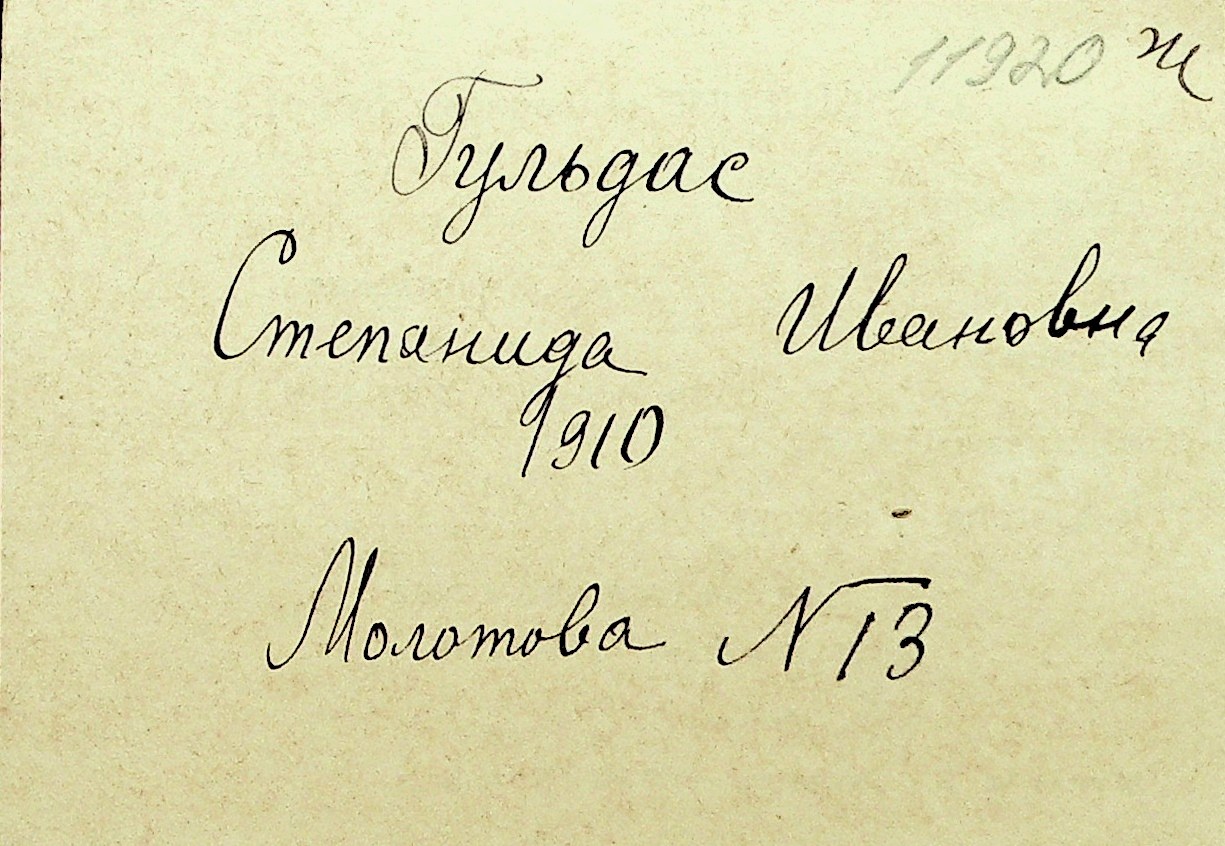 11920 ж
Гульдас
Степанида Ивановна
1910
Молотова N 13